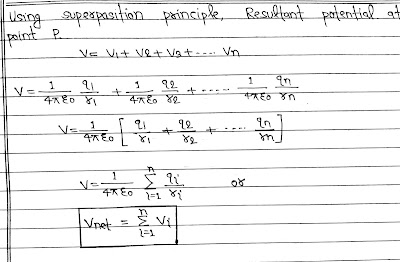 Using superposition principle, Resultant potential at
point P.
V = V1 + V2 + V3 + ---- Vn
V = 1/4πε0 q1/r1 + 1/4πε0 q2/r2 + ----- 1/4πε0 qn/rn
V = 1/4πε0 [ q1/r1 + q2/r2 + ---- qn/rn ]
V = 1/4πε0 n∑i=1 qi/ri or
Vnet = n∑i=1 Vi